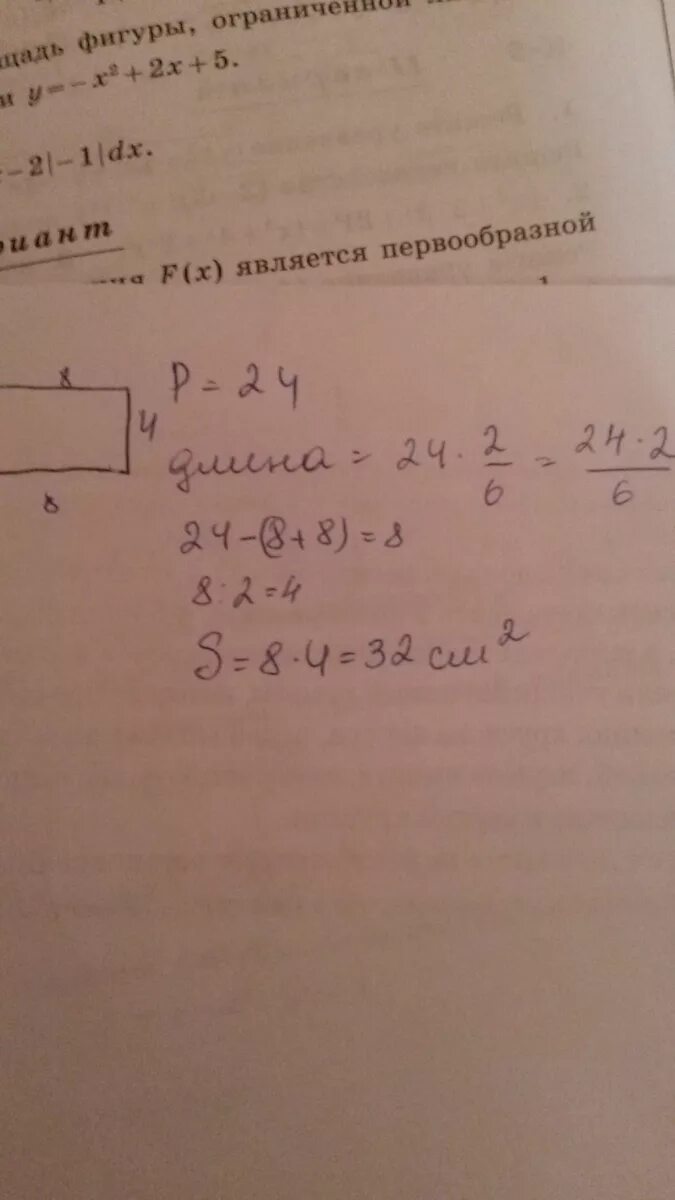 фигуры, ограниченной
y=−x²+2x+5.
−2|−1|dx.
F(x) является первообразной
8
P = 24
4
длина = 24 · 2/6 = 24·2/6
8
24−(8+8)=8
8:2=4
S=8·4=32 см²